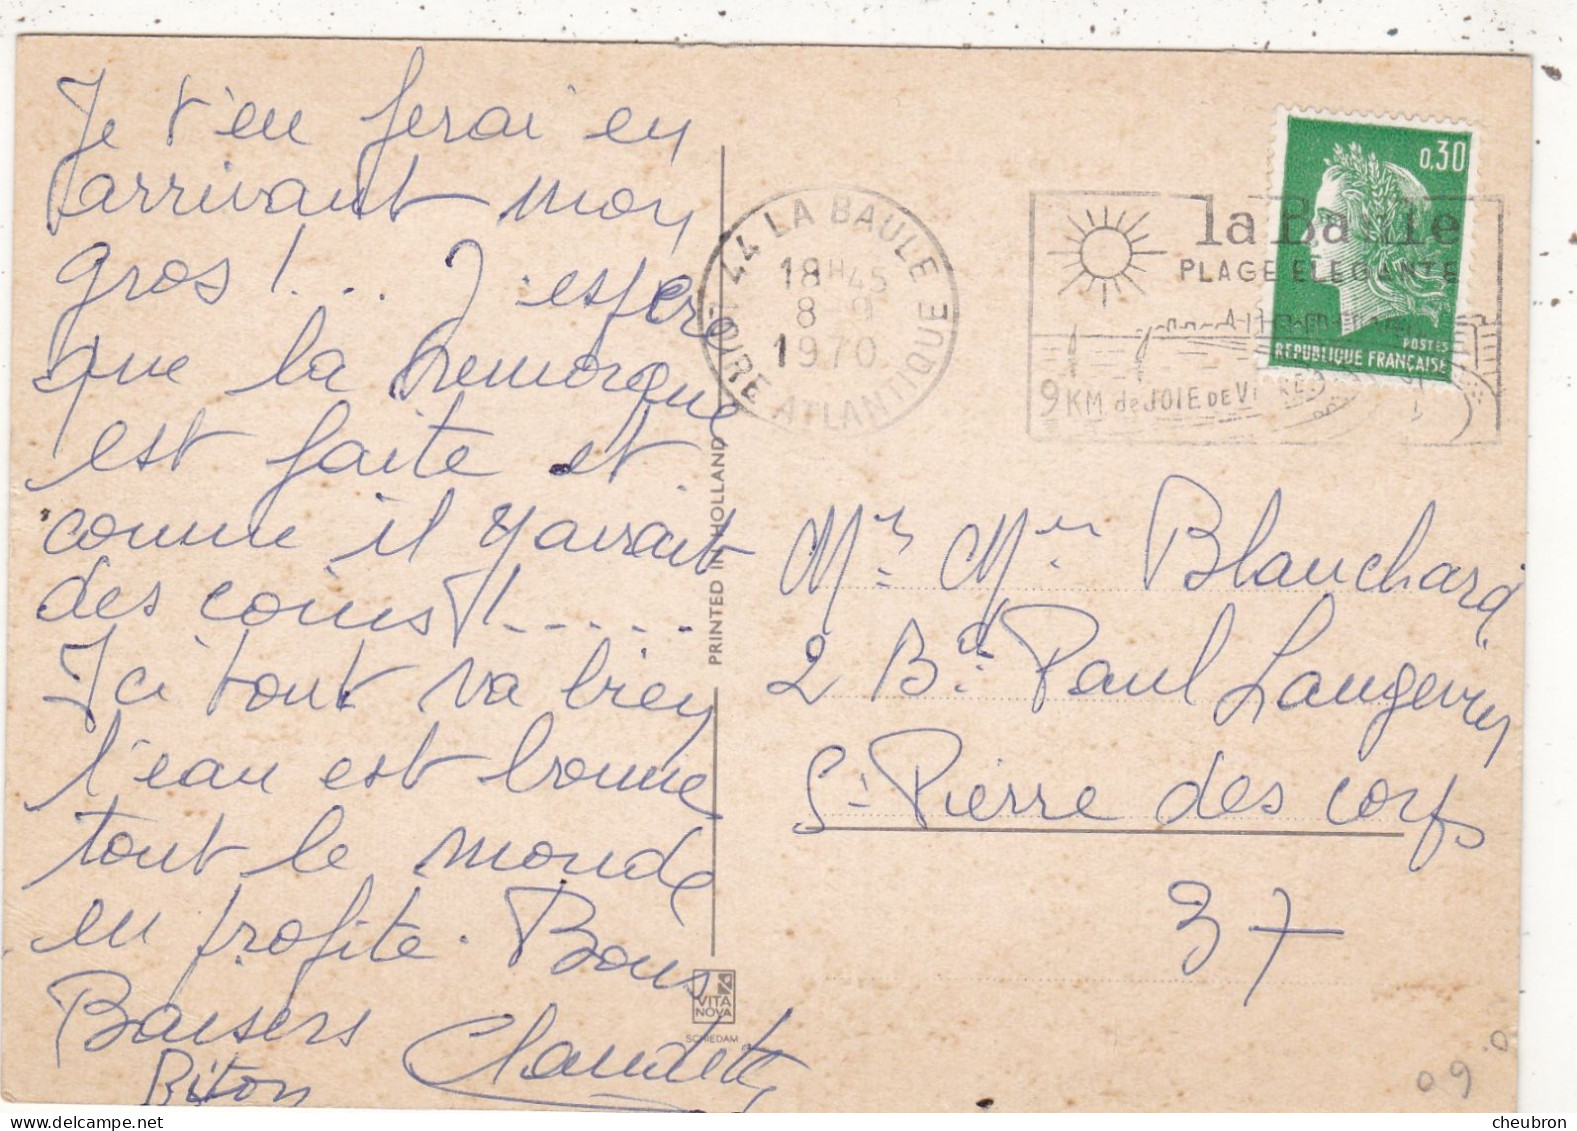 Je t'en ferai en
arrivant mon
gros !... J'espère
que la remorque
est faite et
comme il y avait
des coins !.....
Ici tout va bien
l'eau est bonne
tout le monde
en profite. Bons
Baisers
Claudette
PRINTED IN HOLLAND
VITA
NOVA
SCHIEDAM
44 LA BAULE
18H45
8-9
1970
LOIRE ATLANTIQUE
la Baule
PLAGE ELEGANTE
9 KM de JOIE DE VIVRE
0,30
POSTES
REPUBLIQUE FRANÇAISE
Mr Mme Blanchard
2 Bd Paul Langevin
St Pierre des corps
37
09
cheubron